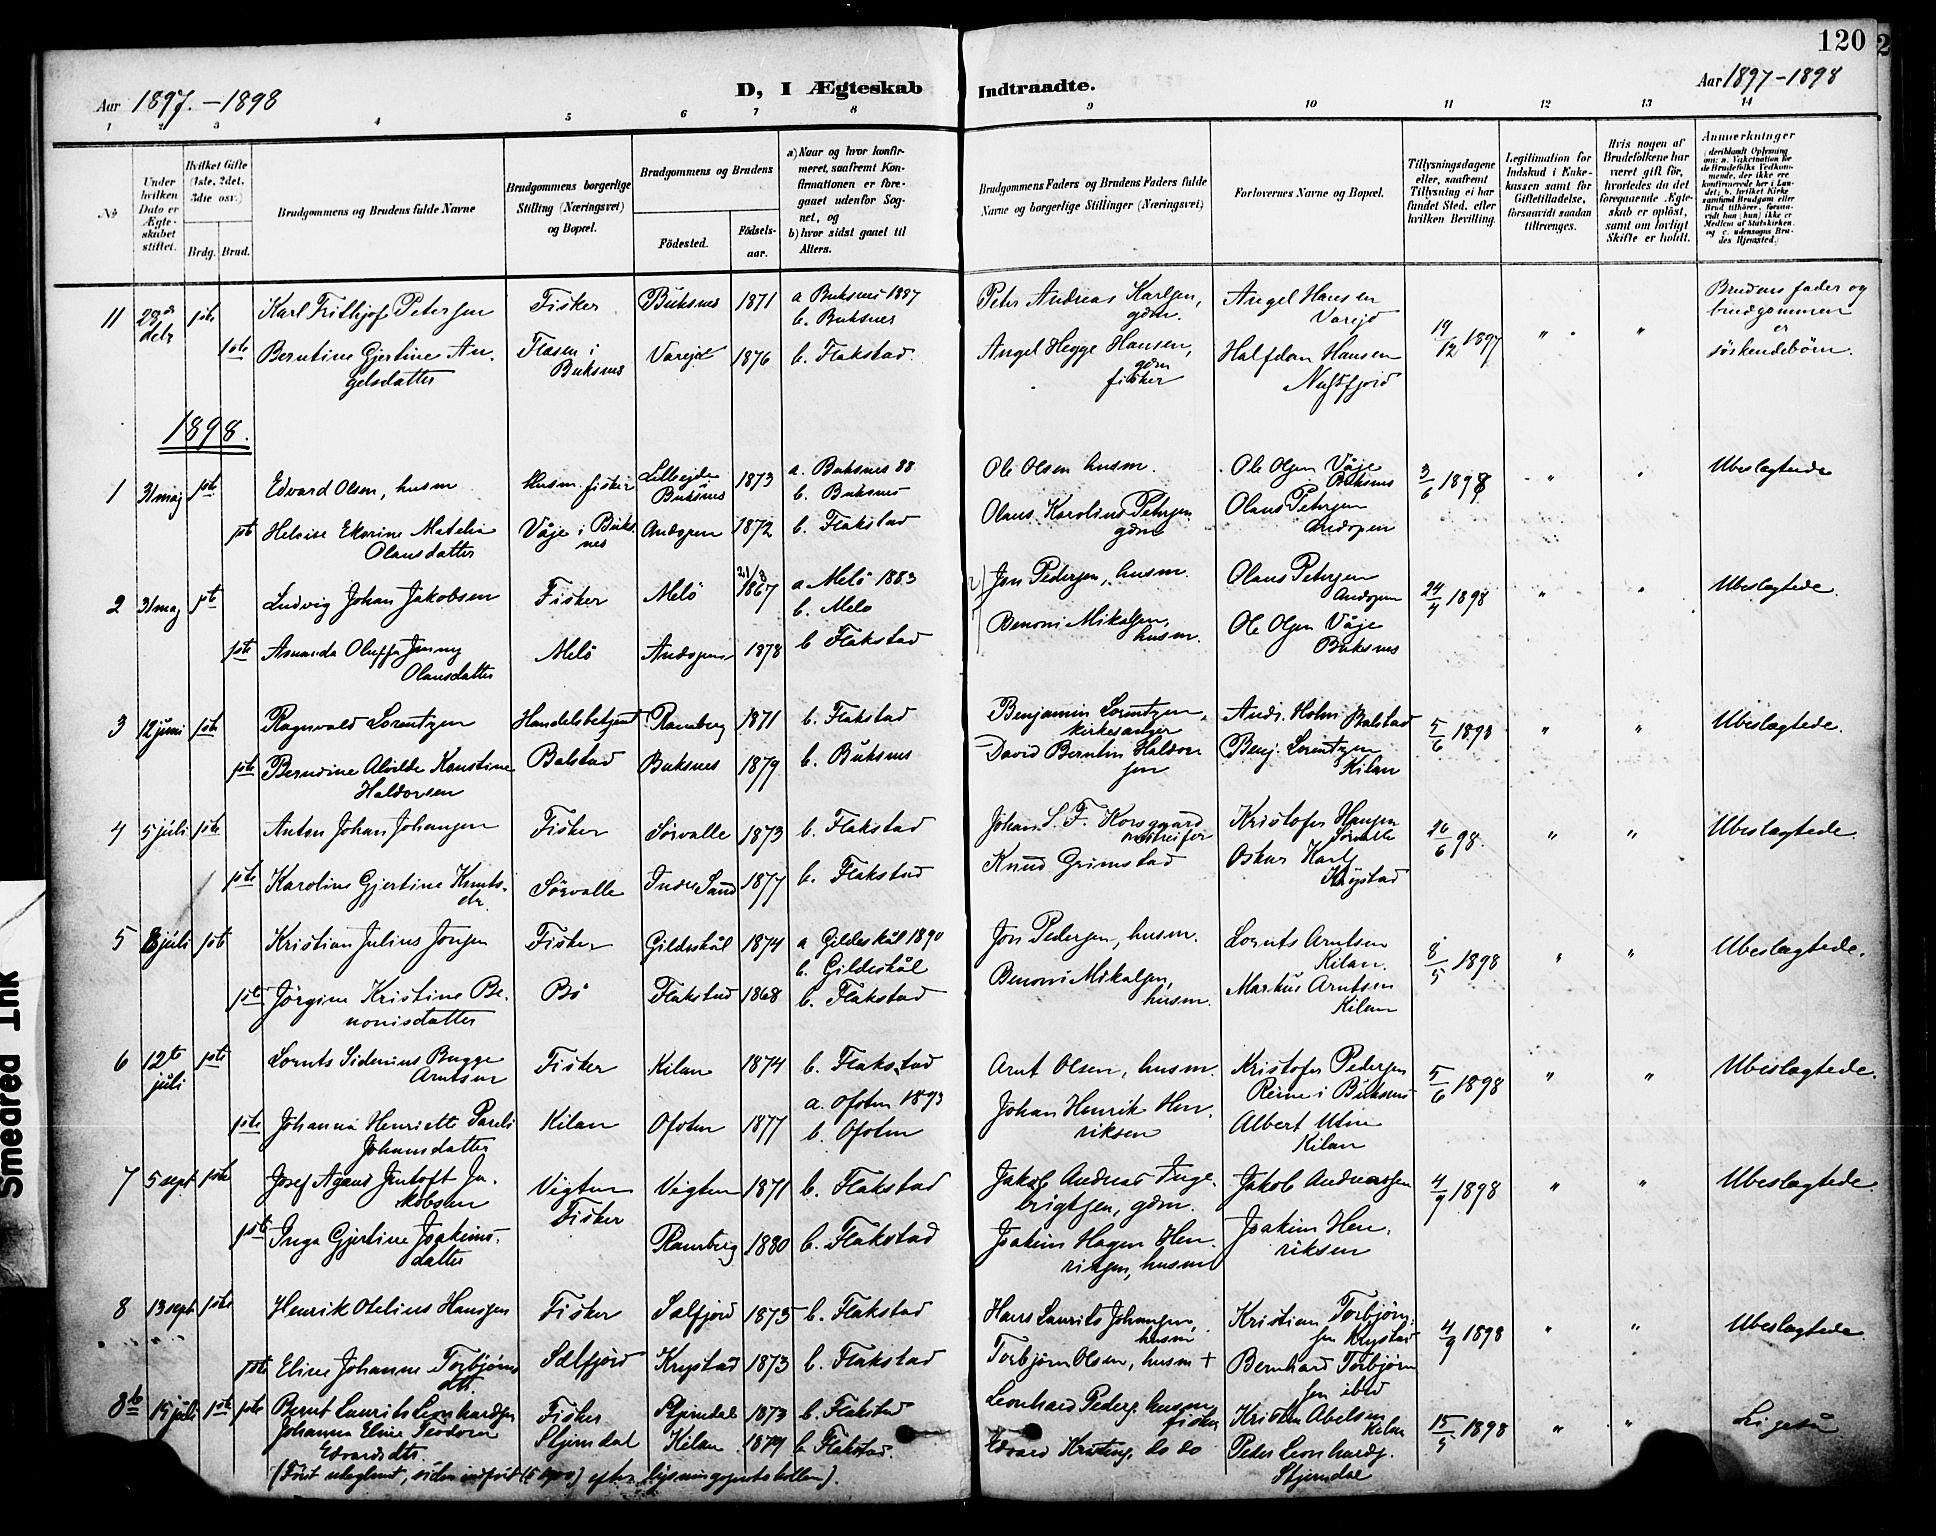 120
Aar 1897.-1898
D, I Ægteskab Indtraadte.
Aar 1897-1898
1 2 3 4 5 6 7 8 9 10 11 12 13 14
№
Under hvilken Dato er Ægteskabet stiftet.
Hvilket Gifte (1ste, 2det, 3die osv.)
Brdg. Brud.
Brudgommens og Brudens fulde Navne
Brudgommens borgerlige Stilling (Næringsvei) og Bopæl.
Brudgommens og Brudens
Fødested. Fødselsaar.
a) Naar og hvor konfirmeret, saafremt Konfirmationen er foregaaet udenfor Sognet, og
b) hvor sidst gaaet til Alters.
Brudgommens Faders og Brudens Faders fulde Navne og borgerlige Stillinger (Næringsvei)
Forlovernes Navne og Bopæl.
Tillysningsdagene eller, saafremt Tillysning ei har fundet Sted, efter hvilken Bevilling.
Legitimation for Indskud i Enkekassen samt for Giftetilladelse, forsaavidt saadan tiltrænges.
Hvis nogen af Brudefolkene har været gift før, hvorledes da det foregaaende Ægteskab er opløst, samt om lovligt Skifte er holdt.
Anmerkninger
11 1ste Karl Frithjof Petersen Fisker Buksnes 1871 a Buksnes 1887 b. Buksnes Peter Andreas Karlsen, gdm. Angel Hansen Varejd 19/12 1897 " " Brudens fader og brudgommen er söskendebörn.
1ste Berntine Gjertine Angelsdatter Flæsen i Buksnes Varejd 1876 b. Flakstad. Angel Hegge Hansen, gdm fisker Halfdan Hansen Nusfjord
1898.
1 31 maj 1ste Edvard Olsen, husm Husm. fisker Buksnes 1873 a. Buksnes 88 b. Buksnes Ole Olsen husm. Ole Olsen Våje Buksnes 3/6 1898 " " Ubeslægtede
1ste Helvise Ekarine Matelia Olausdatter Våje i Buksnes Andopen 1872 b. Flakstad Olaus Karolius Petersen gdm Olaus Petersen Andopen
2 31 maj 1ste Ludvig Johan Jakobsen Fisker Melö 21/8 1867 a Melö 1883 b. Melö Jon Pedersen, husm. Olaus Petersen Andopen 24/4 1898 " " Ubeslægtede.
1ste Amanda Oluffa Jenny Olausdatter Melö Andopen 1878 b Flakstad Benoni Mikalsen, husm. Ole Olsen Våje Buksnes
3 12 juni 1ste Ragnvald Lorentzen Handelsbetjent Ramberg 1871 b. Flakstad Benjamin Lorentzen, kirkesanger Andr. Holm Balstad 5/6 1898 " " Ubeslægtede.
1ste Berndine Alvilde Konstine Haldorsen Balstad Buksnes 1879 b. Buksnes David Berntin Haldorsen Benj. Lorentzen Kilan
4 5 juli 1ste Anton Johan Johansen Fisker Sörvalle 1873 b. Flakstad Johan S. F. Korsgaard Kristofer Hansen Sörvalle 26/6 98. " " Ubeslægtede.
1ste Karoline Gjertine Knutsdr. Sörvalle Indre Sand 1877 b. Flakstad Knud Grimstad Oskar Karls Krystad
5 8 juli 1ste Kristian Julius Jonsen Fisker Gildeskål 1874 a Gildeskål 1890 b. Gildeskål Jon Pedersen, husm. Lornts Arntsen Kilan. 8/5 1898 " " Ubeslægtede.
1ste Jörgine Kristine Benonisdatter Bö Flakstad 1868 b. Flakstad Benoni Mikalsen, husm. Markus Arntsen Kilan
6 12te juli 1ste Lornts Sidenius Bugge Arntsen Fisker Kilan 1874 b. Flakstad Arnt Olsen, husm. Kristofer Pedersen Reine i Buksnes 5/6 1898 " " Ubeslægtede.
1ste Johanna Henriette Pareli Johansdatter Kilan Ofoten 1877 a. Ofoten 1893 b. Ofoten Johan Henrik Henriksen Albert Utne Kilan
7 5 sept 1ste Josef Agand Jentoft Jakobsen Vigten Fisker Vigten 1871 b. Flakstad Jakob Andreas Ingebrigtsen, gdm. Jakob Andreassen 4/9 1898 " " Ubeslægtede.
1ste Inga Gjertine Joakimsdatter Ramberg 1880 b. Flakstad Joakim Hagen Henriksen, husm Joakim Henriksen
8 13 sept 1ste Henrik Otelius Hansen Fisker Selfjord 1875 b. Flakstad Hans Laurits Johansen, husm Kristian Torbjørnsen Krystad 4/9 1898 " " Ubeslægtede.
1ste Eline Johanne Torbjørnsdtr. Selfjord Krystad 1873 b. Flakstad Torbjørn Olsen, husm + Bernhard Torbjørnsen ibid
8b 19 juli 1ste 1ste Bernt Laurits Leonhardsen Fisker Stjerndal 1873 b. Flakstad Leonhard Peders. husm fisker Kristen Abelsen Kilan 15/5 1898 " " Ligeså
Johanna Eline Teodora Edvardsdtr. Stjerndal Kilan 1874 b. Flakstad. Edvard Kristens. do do Peder Leonhards. Stjerndal
(Först uteglemt, siden indfört efter lysningsprotokollen).
Smeared Ink